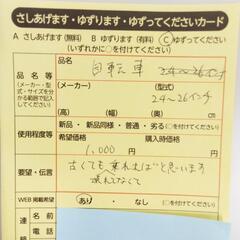 さしあげます・ゆずります・ゆずってくださいカード
A さしあげます（無料） B ゆずります（有料） C ゆずってください
（いずれかに○を付けてください）
品名等
（メーカー・型式・サイズを分かる範囲で記入してください）
（品名）
自転車
（メーカー）
（型式）
24～26インチ
（高） （幅） （奥）
cm cm
使用程度等
新品・新品同様・普通・劣る（○を付けてください）
希望価格
購入時価格
1,000 円
円
要望・伝言
古くても乗れればと思います
壊れてなくて
WEB掲載希望
あり ・ なし （○を付けてください）
連
電話